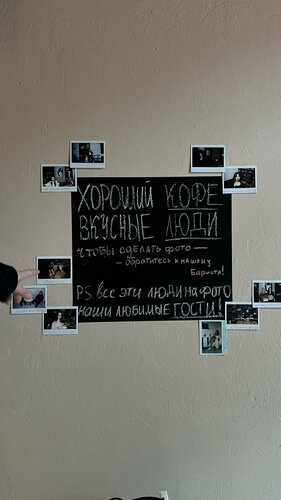 ХОРОШИЙ КОФЕ
ВКУСНЫЕ ЛЮДИ
ЧТОБЫ СДЕЛАТЬ ФОТО —
— ОБРАТИТЕСЬ К НАШЕМУ
БАРИСТА!
P.S. ВСЕ ЭТИ ЛЮДИ НА ФОТО
НАШИ ЛЮБИМЫЕ ГОСТИ!